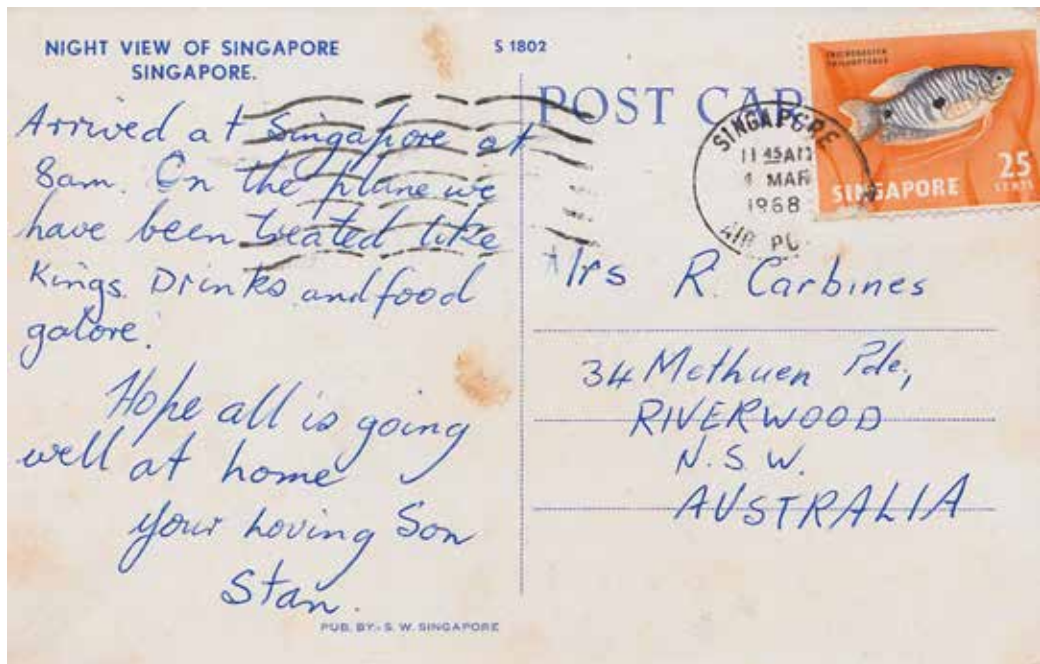 NIGHT VIEW OF SINGAPORE
SINGAPORE.
S 1802
Arrived at Singapore at
8am. On the plane we
have been treated like
Kings. Drinks and food
galore.
Hope all is going
well at home
your Loving Son
Stan.
PUB. BY:- S. W. SINGAPORE
POST CAR
SINGAPORE
11 45 AM
MAR
1968
AIR
25
CENTS
SINGAPORE
Mrs R. Carbines
34 Methuen Pde,
RIVERWOOD
N.S.W.
AUSTRALIA